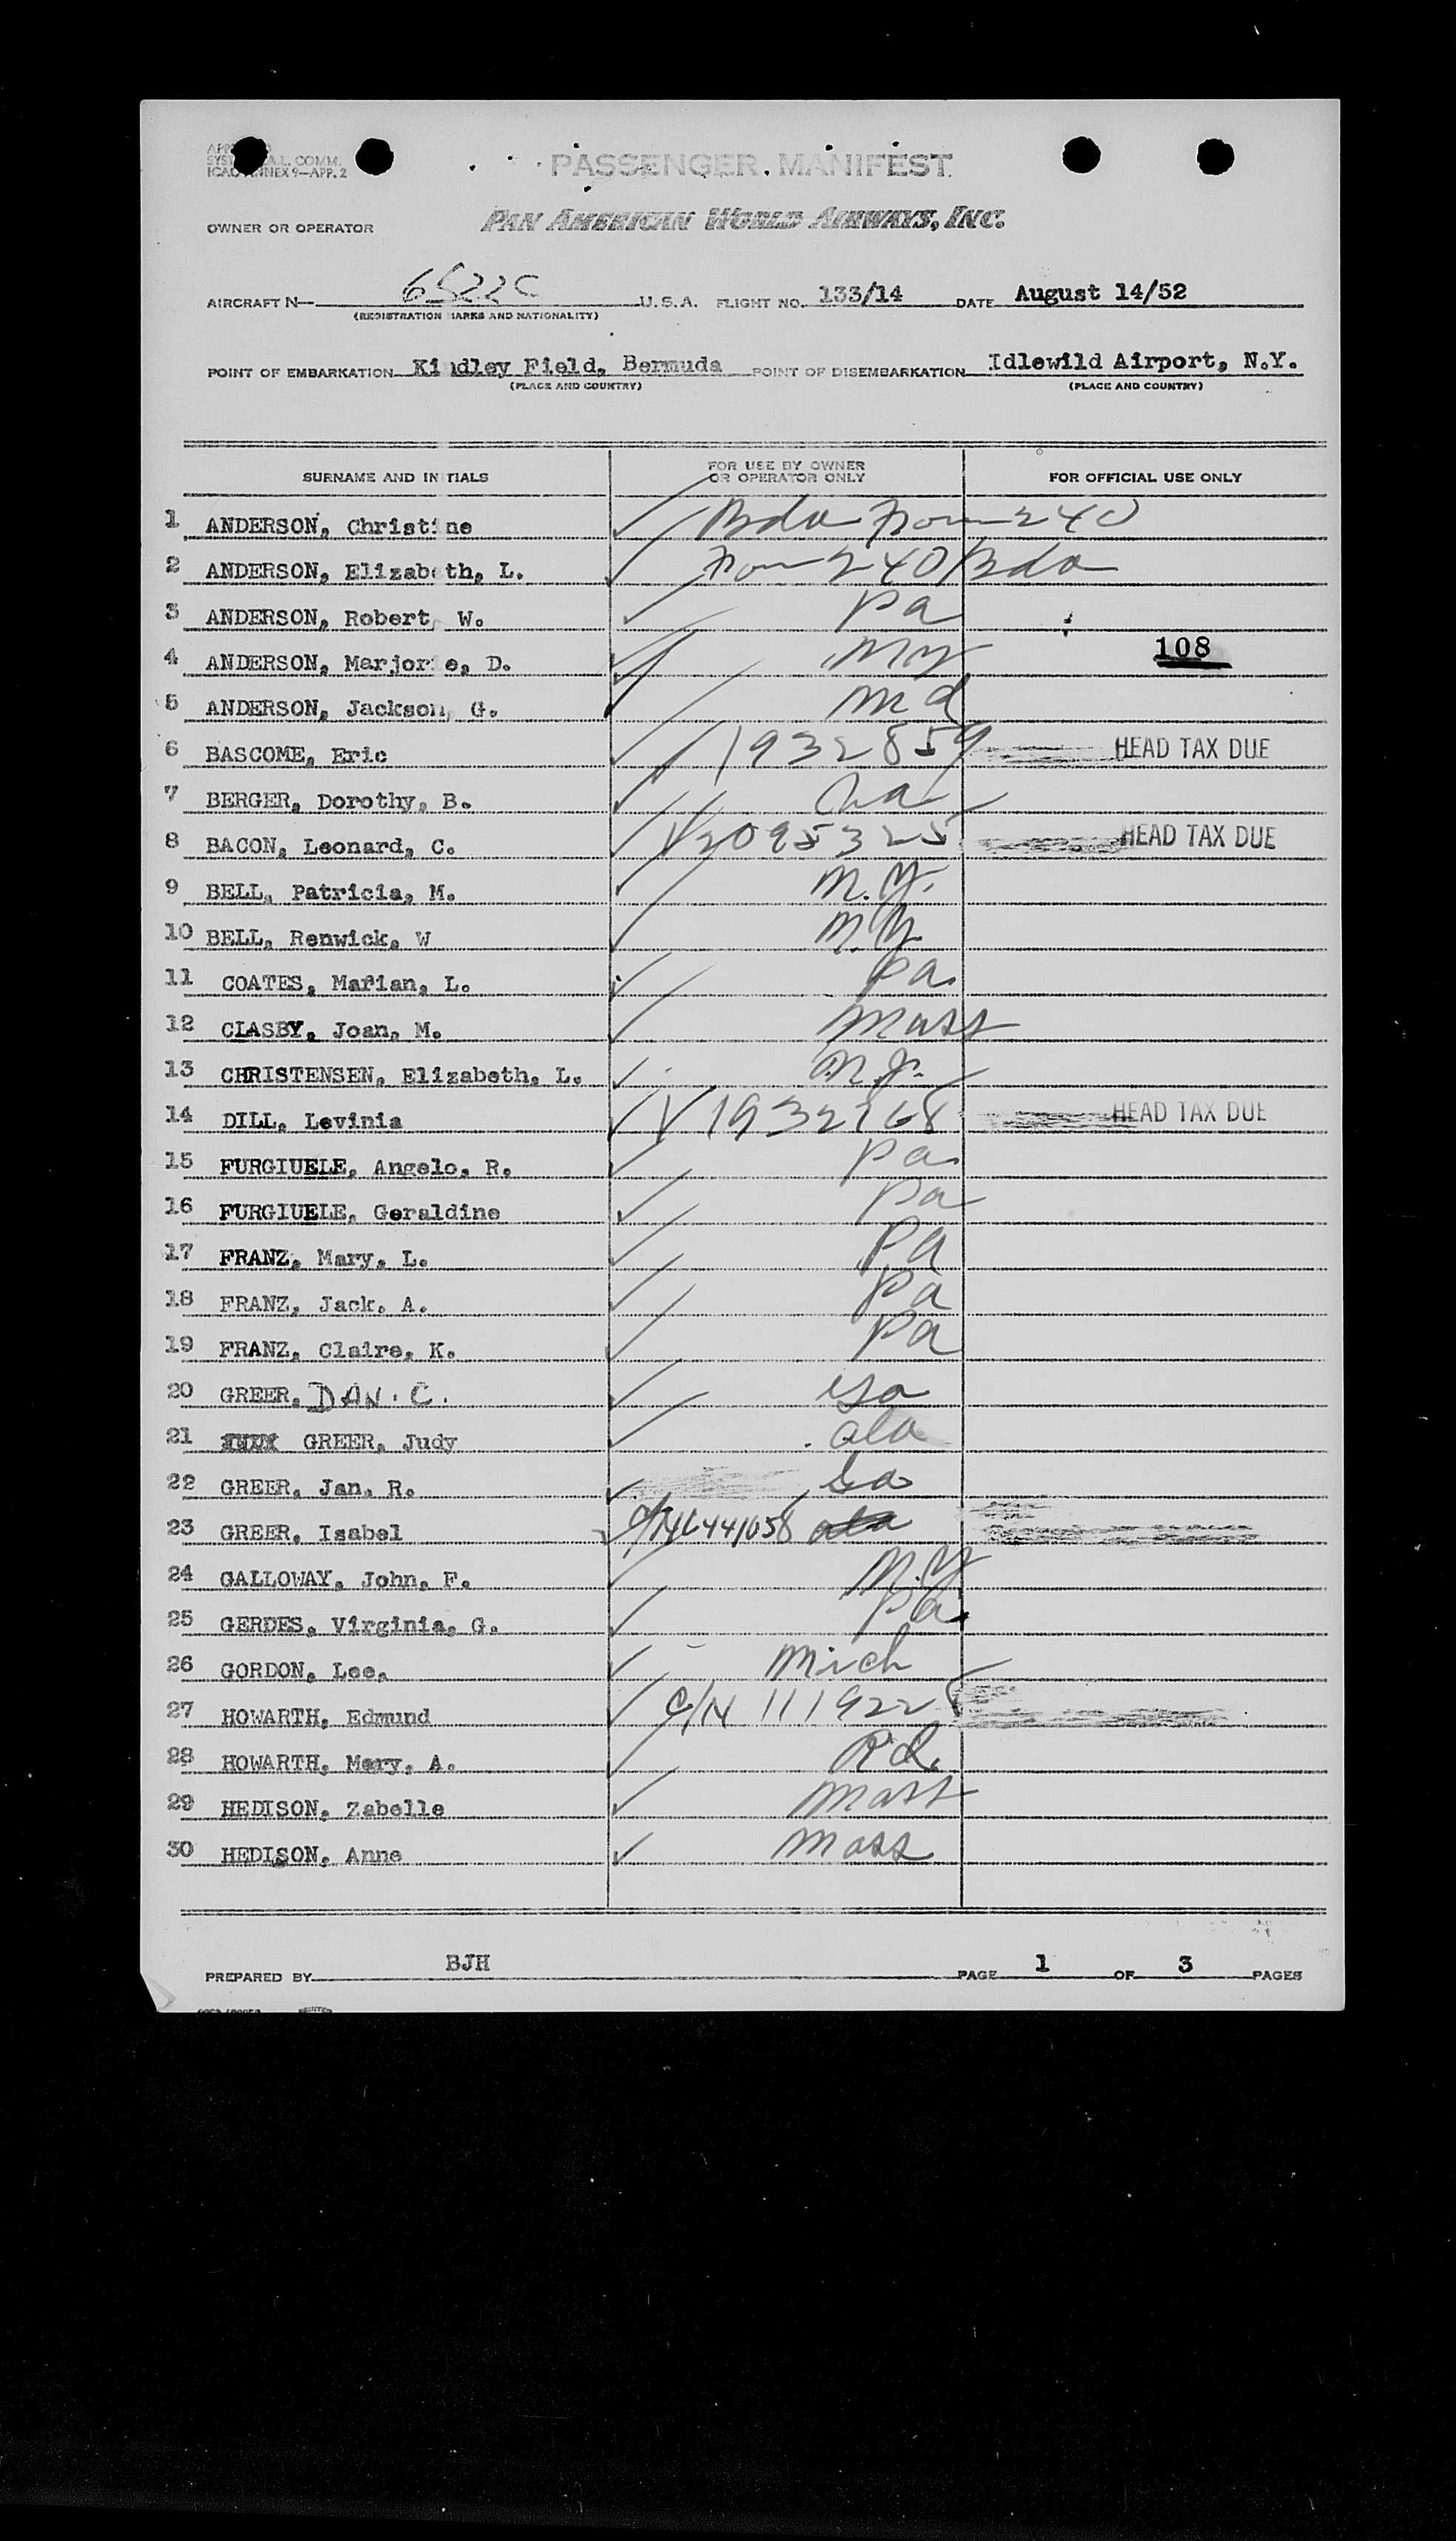 SYST COMM.
ICAO ANNEX 9—APP. 2
PASSENGER MANIFEST
OWNER OR OPERATOR PAN AMERICAN WORLD AIRWAYS, INC.
AIRCRAFT N— 6522C U.S.A. FLIGHT NO. 133/14 DATE August 14/52
(REGISTRATION MARKS AND NATIONALITY)
POINT OF EMBARKATION Kindley Field, Bermuda POINT OF DISEMBARKATION Idlewild Airport, N.Y.
(PLACE AND COUNTRY) (PLACE AND COUNTRY)
SURNAME AND INITIALS FOR USE BY OWNER OR OPERATOR ONLY FOR OFFICIAL USE ONLY
1 ANDERSON, Christine Bda 240
2 ANDERSON, Elizabeth, L. 240 Bda
3 ANDERSON, Robert, W. Pa
4 ANDERSON, Marjorie, D. 108
5 ANDERSON, Jackson, G. Md
6 BASCOME, Eric 1932859 HEAD TAX DUE
7 BERGER, Dorothy, B.
8 BACON, Leonard, C. V2095325 HEAD TAX DUE
9 BELL, Patricia, M. N.Y.
10 BELL, Renwick, W N.Y.
11 COATES, Marian, L. Pa.
12 CLASBY, Joan, M. Mass
13 CHRISTENSEN, Elizabeth, L. N.J.
14 DILL, Levinia V1932768 HEAD TAX DUE
15 FURGIUELE, Angelo, R. Pa
16 FURGIUELE, Geraldine Pa
17 FRANZ, Mary, L. Pa
18 FRANZ, Jack, A. Pa
19 FRANZ, Claire, K. Pa
20 GREER, DAN. C. Ga
21 GREER, Judy Ala
22 GREER, Jan, R. Ga
23 GREER, Isabel ala
24 GALLOWAY, John, F. N.Y
25 GERDES, Virginia, G. Pa
26 GORDON, Lee, Mich
27 HOWARTH, Edmund C/N 111922
28 HOWARTH, Mary, A. Rd.
29 HEDISON, Zabelle Mass
30 HEDISON, Anne Mass
PREPARED BY BJH PAGE 1 OF 3 PAGES